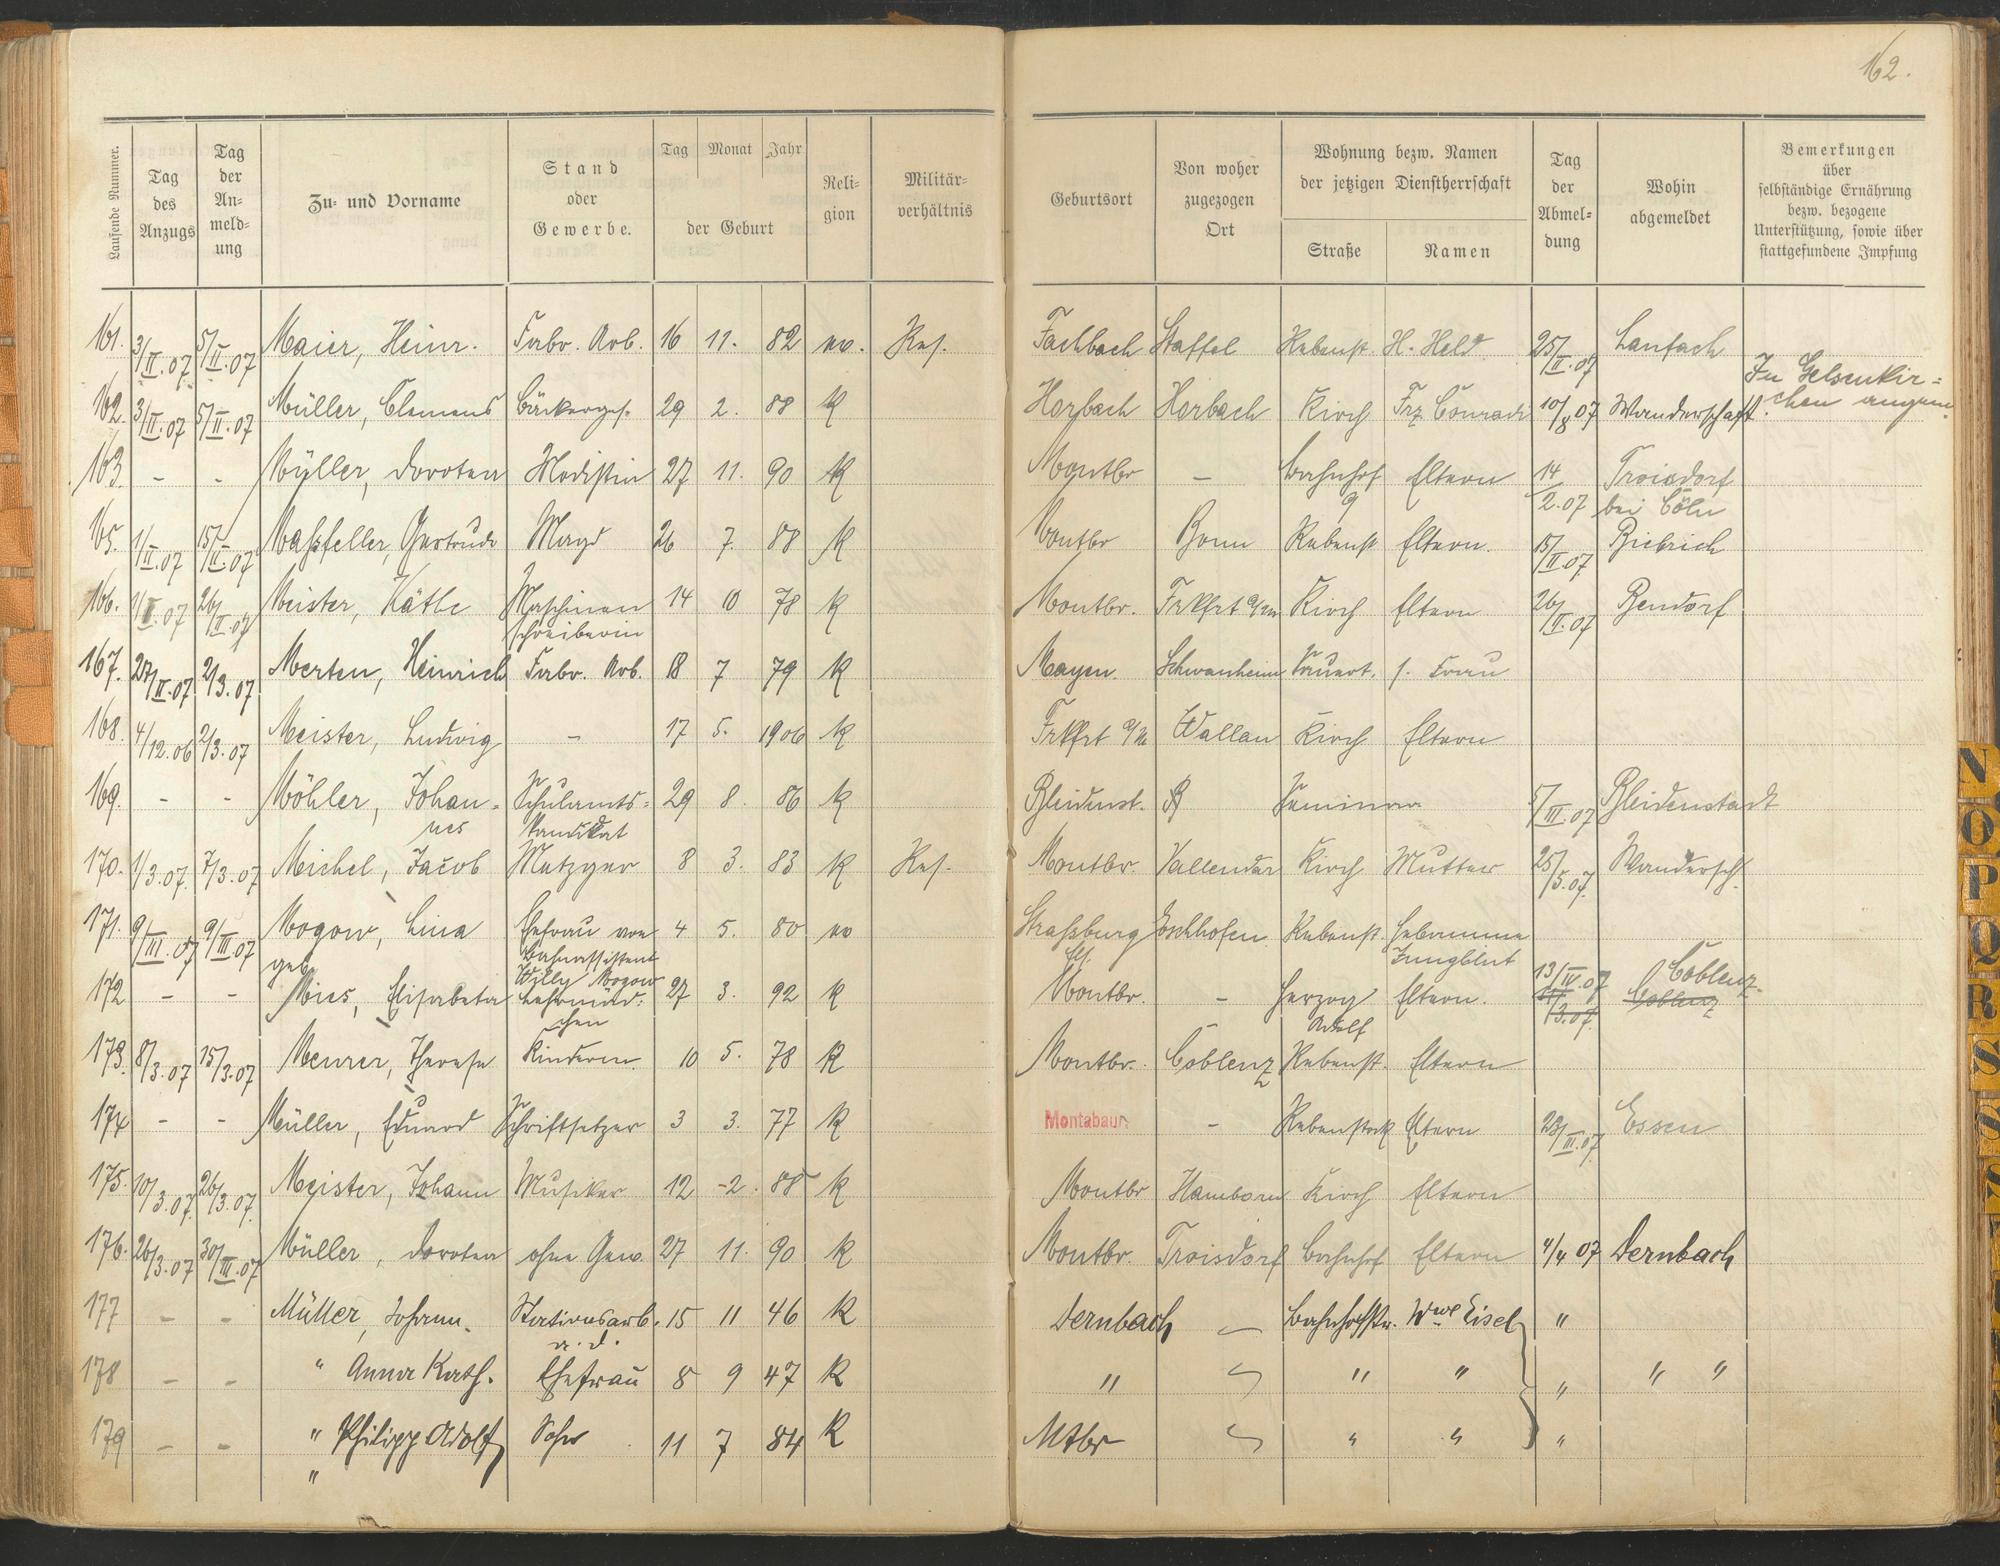 162.
Laufende Nummer.
Tag des Anzugs
Tag der An= meld= ung
Zu= und Vorname
Stand oder Gewerbe.
Tag Monat Jahr
der Geburt
Reli= gion
Militär= verhältnis
Geburtsort
Von woher zugezogen Ort
Wohnung bezw. Namen der jetzigen Dienstherrschaft
Straße
Namen
Tag der Abmel= dung
Wohin abgemeldet
Bemerkungen über selbständige Ernährung bezw. bezogene Unterstützung, sowie über stattgefundene Impfung
161. 3/II.07 5/II.07 Maier, Heinr. Fabr. Arb. 16 11. 82 ev. Res. Fachbach Staffel Rebenst H. Held 25/II.07
162. 3/II.07 5/II.07 Müller, Clemens Bäckerges. 29 2. 88 K Horbach Horbach Kirch Frz. Conradi 10/8 07 Wanderschaft. In Gelsenkir=
chen
163. - - Müller, Dorotea Modistin 27 11. 90 K Montbr - Bahnhof Eltern 14/2.07 Troisdorf
9 bei Cöln
165. 1/II.07 15/II.07 Maßfeller, Gertrude Magd 26 7. 88 K Montbr Bonn Rebenst Eltern. 15/II.07 Biebrich
166. 1/II.07 26/II.07 Meister, Käthe Maschinen 14 10 78 K Montbr. Frkfrt a/M Kirch Eltern 26/II.07 Bendorf
schreiberin
167. 27/II.07 2/3.07 Merten, Heinrich Fabr. Arb. 18 7 79 K Mayen. Schwanheim Sauert. s. Frau
168. 4/12.06 2/3.07 Meister, Ludwig - 17 5. 1906 K Frkfrt a/M Wallau Kirch Eltern
169. - - Möhler, Johan= Schulamts= 29 8. 86 K Bleidenst. Seminar 5/III.07 Bleidenstadt
nes kandidat
170. 1/3.07. 7/3.07 Michel, Jacob Metzger 8 3. 83 K Res. Montbr. Vallendar Kirch Mutter 25/5.07. Wandersch.
171. 9/III.07 9/III.07 Mogow, Lina Ehefrau von 4 5. 80 ev Straßburg Eschhofen Rebenst. Hebamme
geb Bahnassistent Els. Jungblut
Willy Mogow
172 - - Mies, Elisabeta Lehrmäd= 27 3. 92 K Montbr. - Herzog Eltern. 13/IV.07 Coblenz.
chen Adolf 3.07. Coblenz
173. 8/3.07 15/3.07 Meurer, Therese Kinderm. 10 5. 78 K Montbr. Coblenz Rebenst. Eltern
174 - - Müller, Eduard Schriftsetzer 3 3. 77 K Montabaur. - Rebenstock Eltern 23/III.07 Essen
175. 10/3.07. 26/3.07. Meister, Johann Musiker 12 2. 88 K Montbr Hamborn Kirch Eltern
176. 26/3.07 30/III.07 Müller, Dorotea ohne Gew. 27 11. 90 K Montbr. Troisdorf Bahnhof Eltern 4/4 07 Dernbach
177 - - Müller, Johann. Stationsarb. 15 11 46 K Dernbach - Bahnhofstr. Wwe Eisel "
a. d.
178 - - " Anna Kath. Ehefrau 8 9 47 K " " " " " "
179 - - " Philipp Adolf Sohn 11 7 84 K Mtbr " " "
"
N
O
P
Q
R
S
S